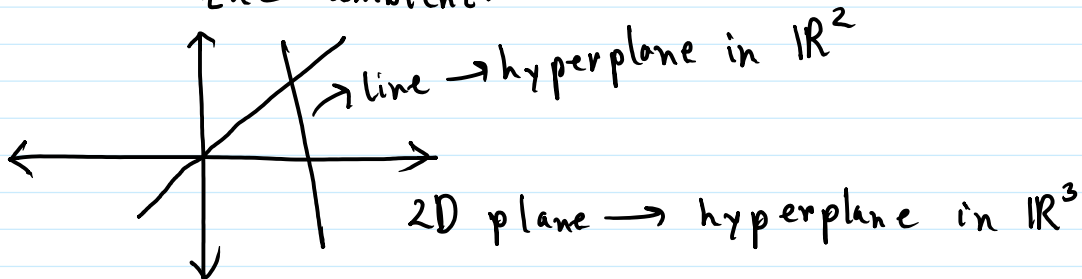 line → hyperplane in ℝ²
2D plane → hyperplane in ℝ³